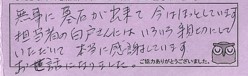 無事に墓石が出来て今はほっとしています
担当者の白戸さんにはいろいろ親切にして
いただいて本当に感謝しています
お世話になりました。
ご協力ありがとうございました。